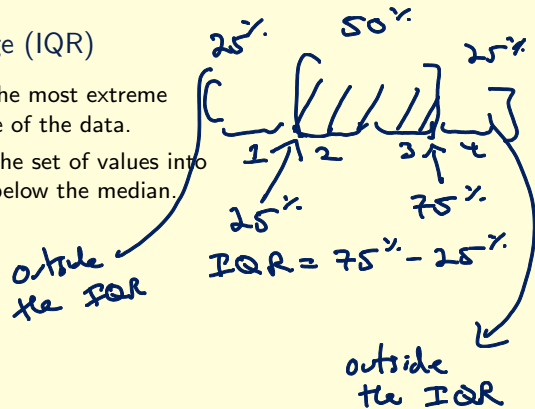 ge (IQR)
25%
50%
25%
he most extreme
e of the data.
he set of values into
below the median.
1 2 3 4
25%
75%
IQR = 75% - 25%
outside
the IQR
outside
the IQR